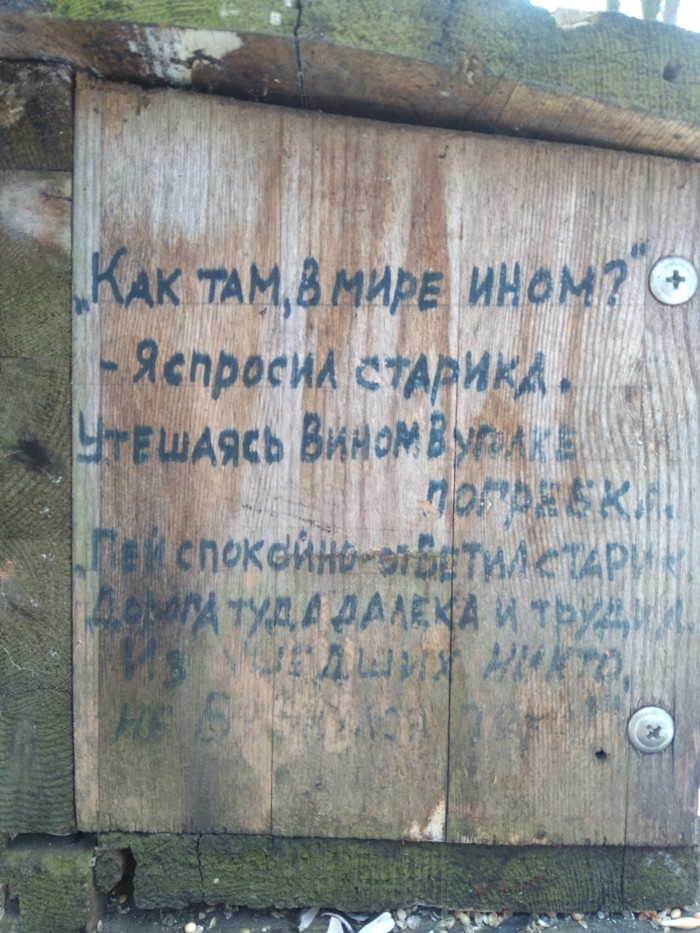 „Как там, в мире ином?"
- Я спросил старика.
Утешаясь вином в уголке
погребка.
„Пей спокойно-ответил старик
Дорога туда далека и трудна.
Из ушедших никто,
не